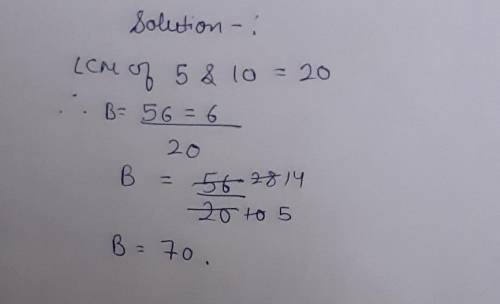 Solution -:
LCM of 5 & 10 = 20
∴ B = 56 = 6
20
B = 56 28 14
20 10 5
B = 70.